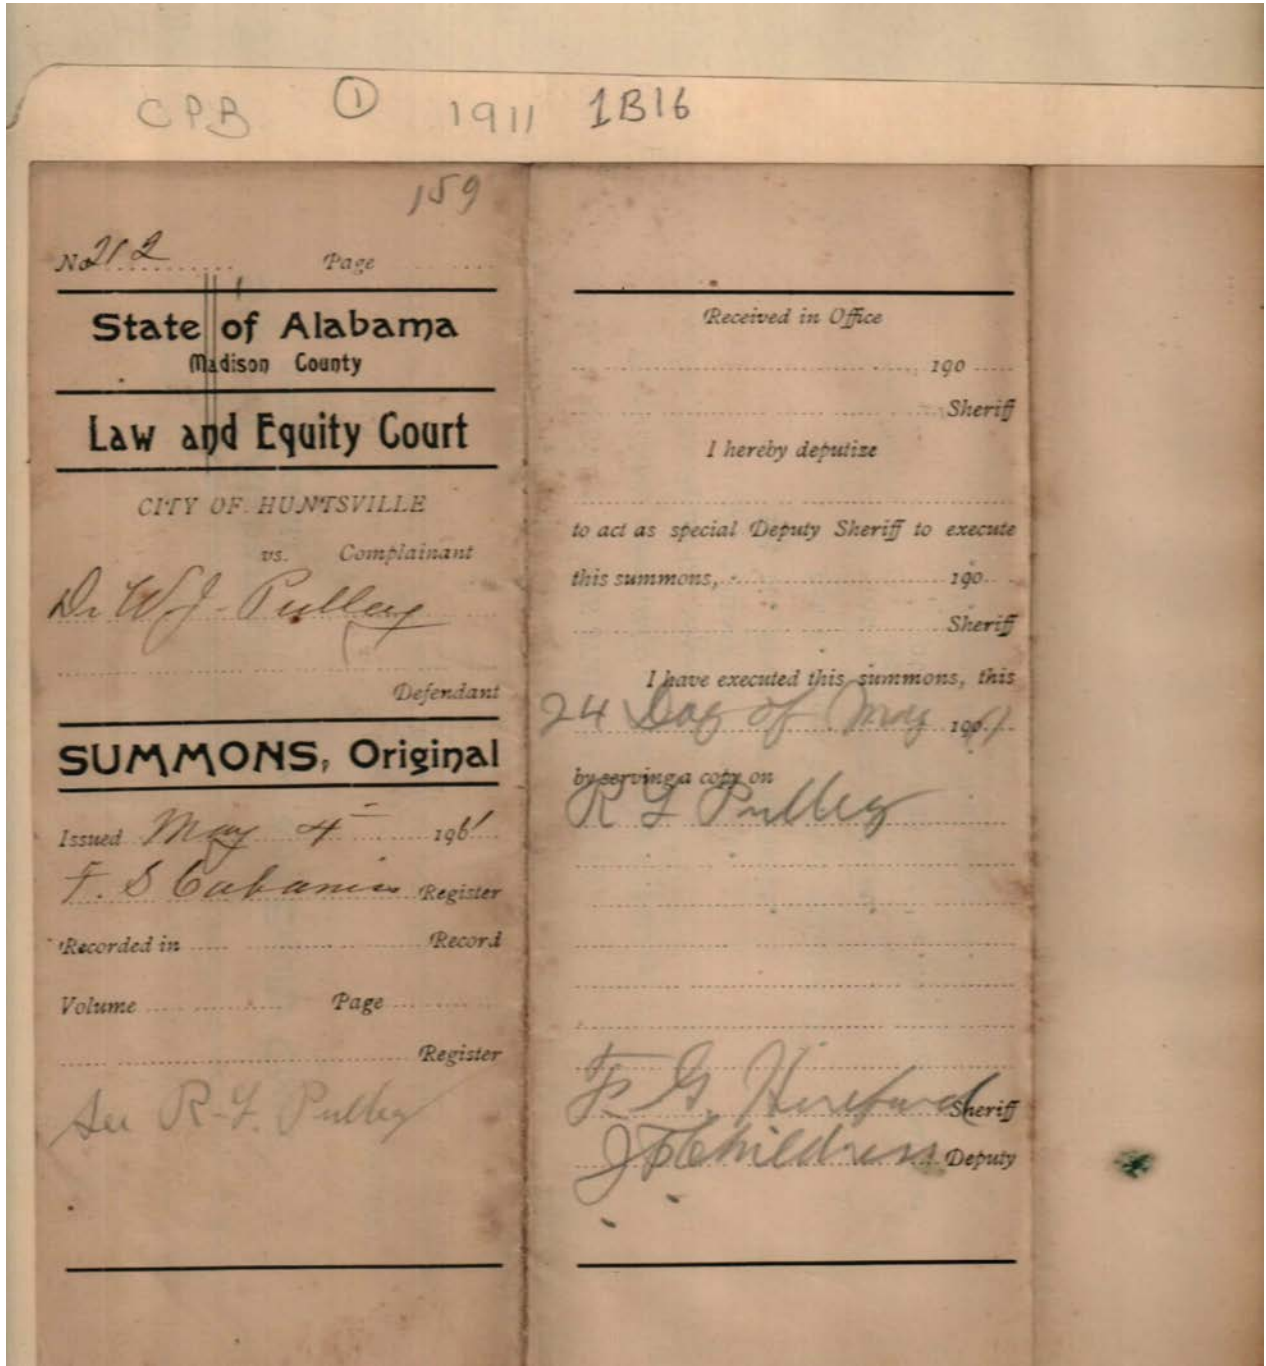 CPB 1 1911 1B16
159
No 212 Page
State of Alabama
Madison County
Law and Equity Court
CITY OF HUNTSVILLE
vs. Complainant
Dr W J Pulley
Defendant
SUMMONS, Original
Issued May 4 191
F. S Cabaniss Register
Recorded in Record
Volume Page
Register
See R. L. Pulley
Received in Office
190
Sheriff
I hereby deputize
to act as special Deputy Sheriff to execute
this summons, 190
Sheriff
I have executed this summons, this
24 Day of May 19
by serving a copy on
R L Pulley
F. G. Hereford Sheriff
J F Childress Deputy